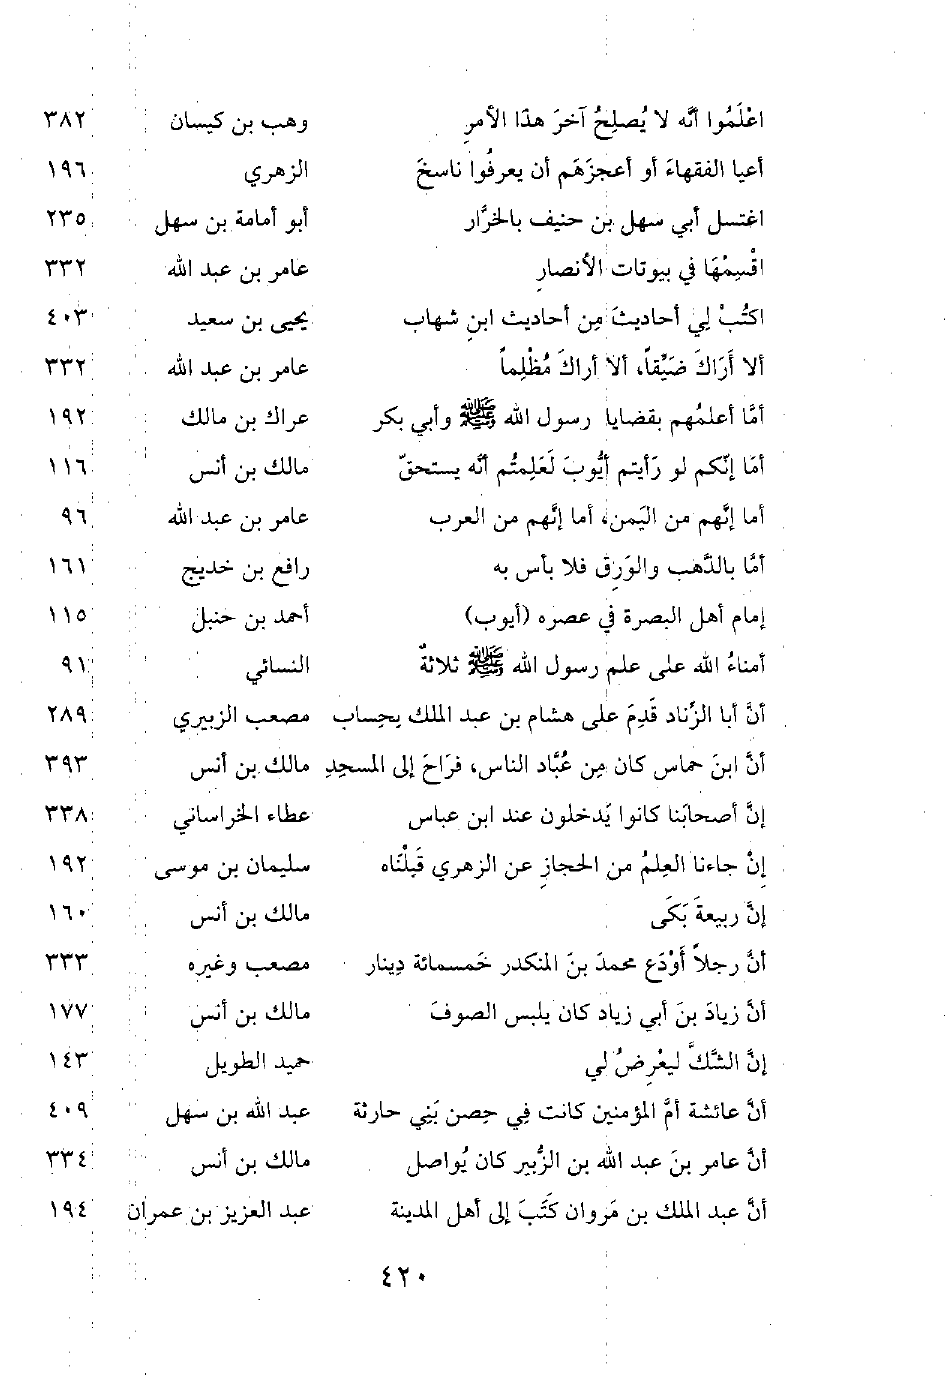 اعْلَمُوا أنَّه لا يُصلِحُ آخرَ هذا الأمرِ وهب بن كيسان ٣٨٢
أعيا الفقهاءَ أو أعجزَهَم أن يعرفُوا ناسخَ الزهري ١٩٦
اغتسل أبي سهل بن حنيف بالخرَّار أبو أمامة بن سهل ٢٣٥
اقْسِمْهَا في بيوتات الأنصارِ عامر بن عبد الله ٣٣٢
اكتُبْ لِي أحاديثَ مِن أحاديث ابنِ شهاب يحيى بن سعيد ٤٠٣
ألا أَرَاكَ ضَيِّقاً، ألا أراكَ مُظْلِماً عامر بن عبد الله ٣٣٢
أمَّا أعلمُهم بقضايا رسول الله ﷺ وأبي بكر عراك بن مالك ١٩٢
أمَا إنّكم لو رَأيتم أيُّوبَ لَعَلِمتُم أنّه يستحقّ مالك بن أنس ١١٦
أما إنَّهم من اليَمن، أما إنَّهم من العرب عامر بن عبد الله ٩٦
أمَّا بالذَّهب والوَرِق فلا بأس به رافع بن خديج ١٦١
إمام أهل البصرة في عصره (أيوب) أحمد بن حنبل ١١٥
أمناءُ الله على علم رسول الله ﷺ ثلاثةٌ النسائي ٩١
أنَّ أبا الزِّناد قَدِمَ على هشام بن عبد الملك بحِساب مصعب الزبيري ٢٨٩
أنَّ ابنَ حماس كان مِن عُبَّاد الناس، فرَاحَ إلى المسجدِ مالك بن أنس ٣٩٣
إنَّ أصحابَنا كانوا يَدخلون عند ابن عباس عطاء الخراساني ٣٣٨
إنْ جاءنا العِلمُ من الحجازِ عن الزهري قَبِلْنَاه سليمان بن موسى ١٩٢
إنَّ ربيعةَ بَكَى مالك بن أنس ١٦٠
أنَّ رجلاً أَوْدَع محمدَ بنَ المنكدر خَمسمائة دِينار مصعب وغيره ٣٣٣
أنَّ زيادَ بنَ أبي زياد كان يلبس الصوفَ مالك بن أنس ١٧٧
إنَّ الشَّكَّ ليعْرِضُ لي حميد الطويل ١٤٣
أنَّ عائشة أمَّ المؤمنين كانت فِي حِصن بَنِي حارثة عبد الله بن سهل ٤٠٩
أنَّ عامر بنَ عبد الله بن الزُّبير كان يُواصل مالك بن أنس ٣٣٤
أنَّ عبد الملك بن مَروان كَتَبَ إلى أهل المدينة عبد العزيز بن عمران ١٩٤
٤٢٠